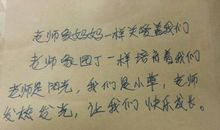 老师象妈妈一样关爱着我们
老师象园丁一样培育着我们
老师是阳光，我们是小草，老师
发热发光，让我们快乐成长。